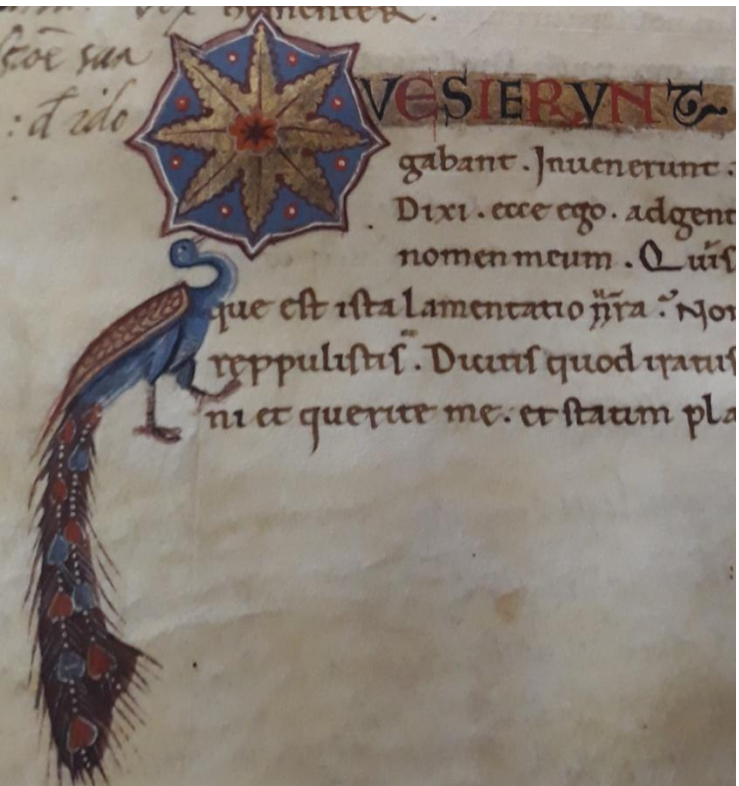 QVESIERVNT
gabant . Inuenerunt .
Dixi . ecce ego . adgent
nomen meum . Quis
que est ista lamentatio nr̄a : Non
reppulistis . Dicitis quod iratus
ni et querite me . et statim pla